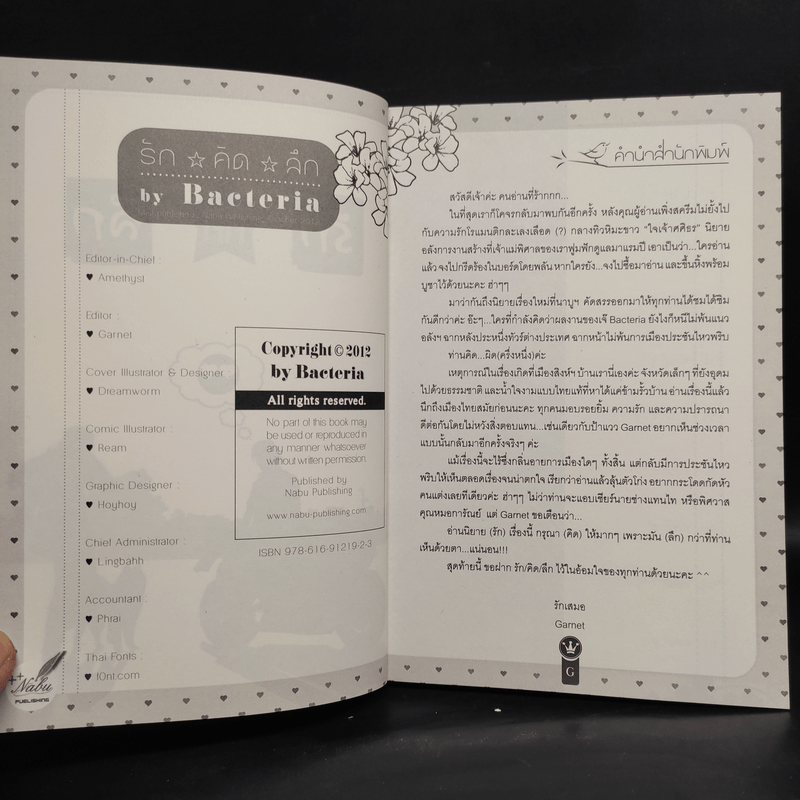 รัก ☆ คิด ☆ ลึก
by Bacteria
Editor-in-Chief :
♥ Amethyst
Editor :
♥ Garnet
Cover Illustrator & Designer
♥ Dreamworm
Comic Illustrator :
♥ Ream
Graphic Designer :
♥ Hoyhoy
Chief Administrator :
♥ Lingbahh
Accountant :
♥ Phrai
Thai Fonts :
♥ f0nt.com
Copyright © 2012
by Bacteria
All rights reserved.
No part of this book may
be used or reproduced in
any manner whatsoever
without written permission.
Published by
Nabu Publishing
www.nabu-publishing.com
ISBN 978-616-91219-2-3
Nabu
PUBLISHING
คำนำสำนักพิมพ์
สวัสดีเจ้าค่ะ คนอ่านที่ร้ากกก...
ในที่สุดเราก็โคจรกลับมาพบกันอีกครั้ง หลังคุณผู้อ่านเพิ่งสครีมไม่ยั้งไป
กับความรักโรแมนติกละเลงเลือด (?) กลางทิวหิมะขาว "ใจเจ้าศศิธร" นิยาย
อลังการงานสร้างที่เจ้าแม่พิศาลของเราฟูมฟักดูแลมาแรมปี เอาเป็นว่า...ใครอ่าน
แล้ว จงไปกรีดร้องในบอร์ดโดยพลัน หากใครยัง...จงไปซื้อมาอ่าน และขึ้นหิ้งพร้อม
บูชาไว้ด้วยนะคะ ฮ่าๆๆ
มาว่ากันถึงนิยายเรื่องใหม่ที่นาบูฯ คัดสรรออกมาให้ทุกท่านได้ชมได้ชิม
กันดีกว่าค่ะ อ๊ะๆ...ใครที่กำลังคิดว่าผลงานของเจ๊ Bacteria ยังไงก็หนีไม่พ้นแนว
อลังฯ ฉากหลังประหนึ่งทัวร์ต่างประเทศ ฉากหน้าไม่พ้นการเมืองประชันไหวพริบ
ท่านคิด...ผิด(ครึ่งหนึ่ง)ค่ะ
เหตุการณ์ในเรื่องเกิดที่เมืองสิงห์ฯ บ้านเรานี่เองค่ะ จังหวัดเล็กๆ ที่ยังอุดม
ไปด้วยธรรมชาติ และน้ำใจงามแบบไทยแท้ที่หาได้แค่ข้ามรั้วบ้าน อ่านเรื่องนี้แล้ว
นึกถึงเมืองไทยสมัยก่อนนะคะ ทุกคนมอบรอยยิ้ม ความรัก และความปรารถนา
ดีต่อกันโดยไม่หวังสิ่งตอบแทน...เช่นเดียวกับป้าแวว Garnet อยากเห็นช่วงเวลา
แบบนั้นกลับมาอีกครั้งจริงๆ ค่ะ
แม้เรื่องนี้จะไร้ซึ่งกลิ่นอายการเมืองใดๆ ทั้งสิ้น แต่กลับมีการประชันไหว
พริบให้เห็นตลอดเรื่องจนน่าตกใจ เรียกว่าอ่านแล้วลุ้นตัวโก่ง อยากกระโดดกัดหัว
คนแต่งเลยทีเดียวค่ะ ฮ่าๆๆ ไม่ว่าท่านจะแอบเชียร์นายช่างแทนไท หรือพิศวาส
คุณหมอการัณย์ แต่ Garnet ขอเตือนว่า...
อ่านนิยาย (รัก) เรื่องนี้ กรุณา (คิด) ให้มากๆ เพราะมัน (ลึก) กว่าที่ท่าน
เห็นด้วยตา...แน่นอน!!!
สุดท้ายนี้ ขอฝาก รัก/คิด/ลึก ไว้ในอ้อมใจของทุกท่านด้วยนะคะ ^^
รักเสมอ
Garnet
G